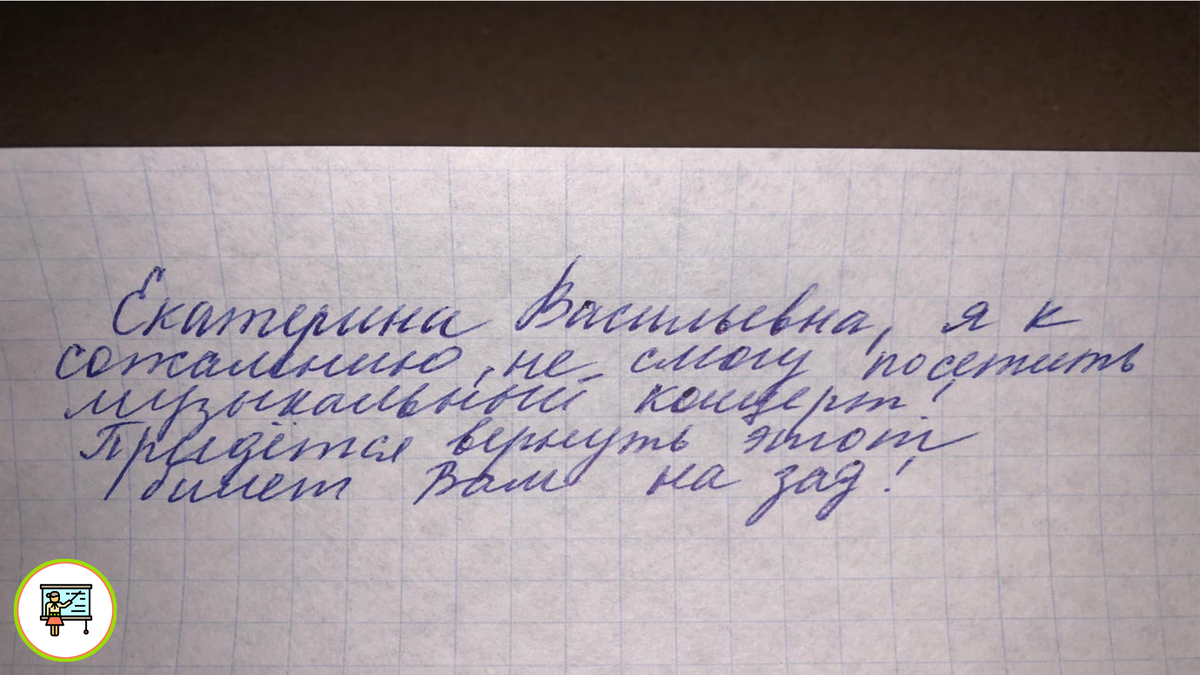 Екатерина Васильевна, я к
сожалению, не смогу посетить
музыкальный концерт!
Придётся вернуть этот
билет Вам на зад!